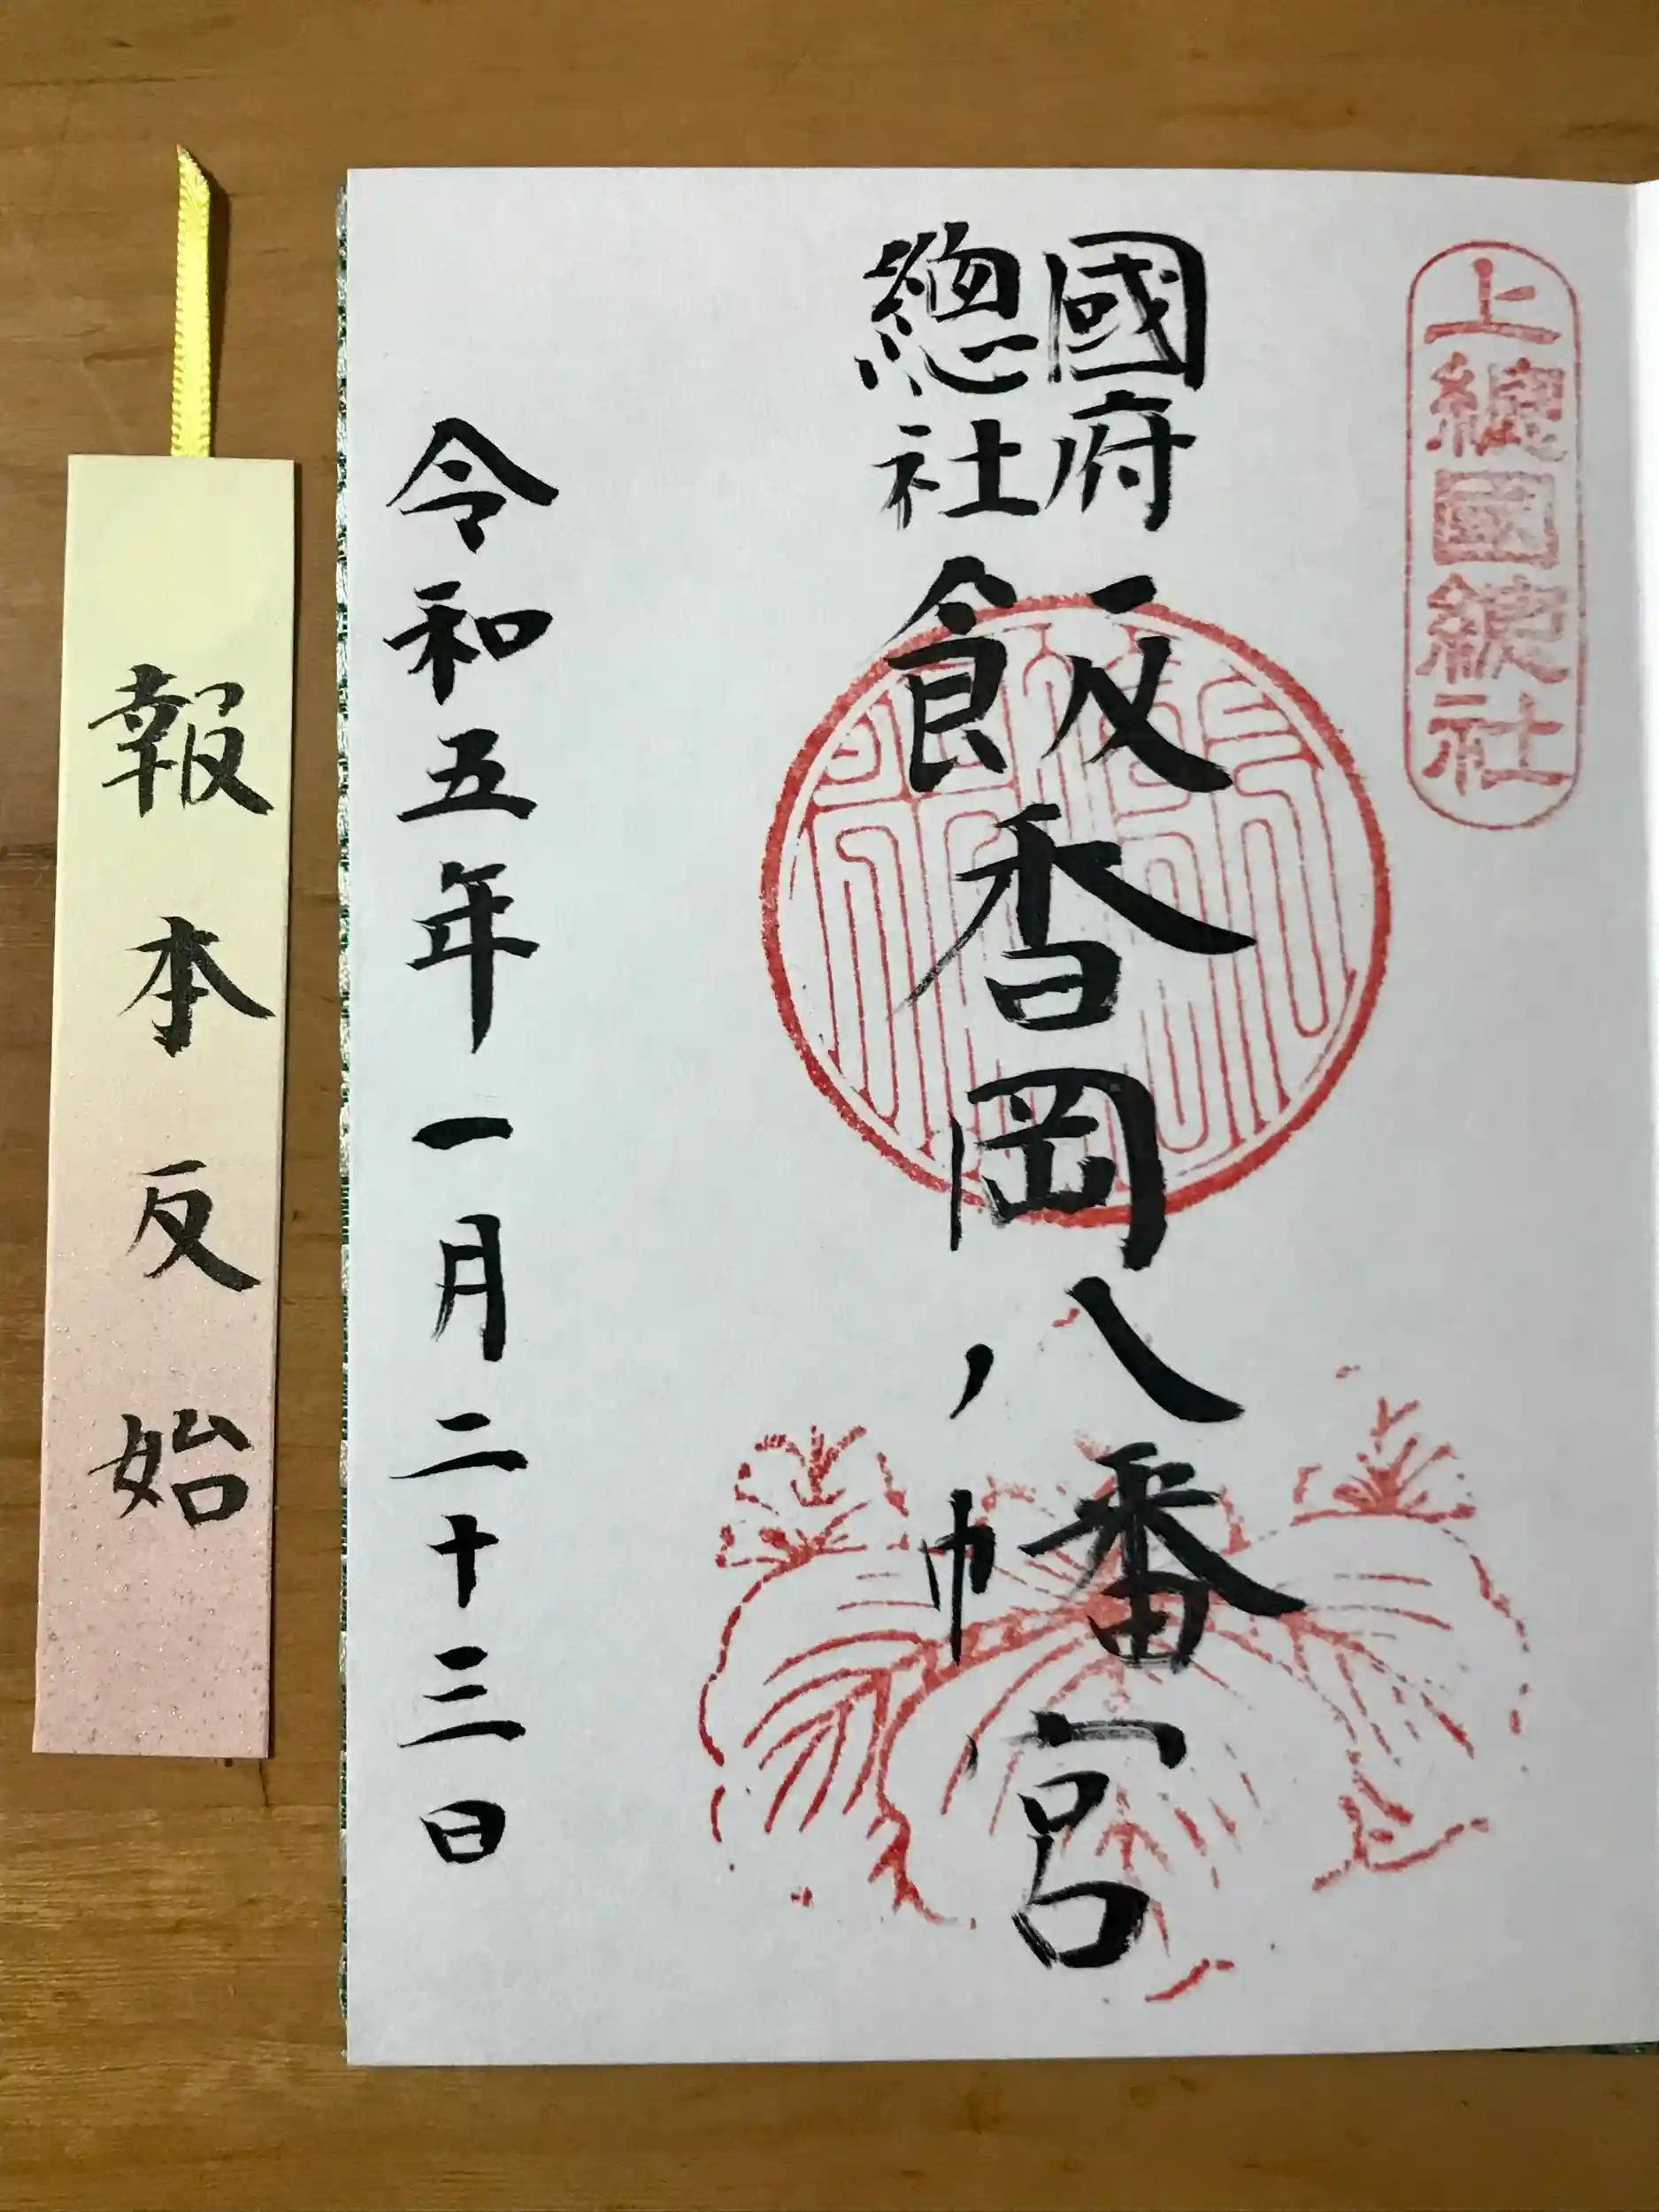 上總國總社
國府
總社
飯香岡八幡宮
令和五年一月二十三日
報本反始